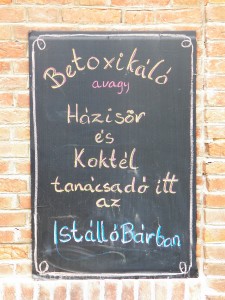 Betoxikáló
avagy
Házisör
és
Koktél
tanácsadó itt
az
Istálló Bárban